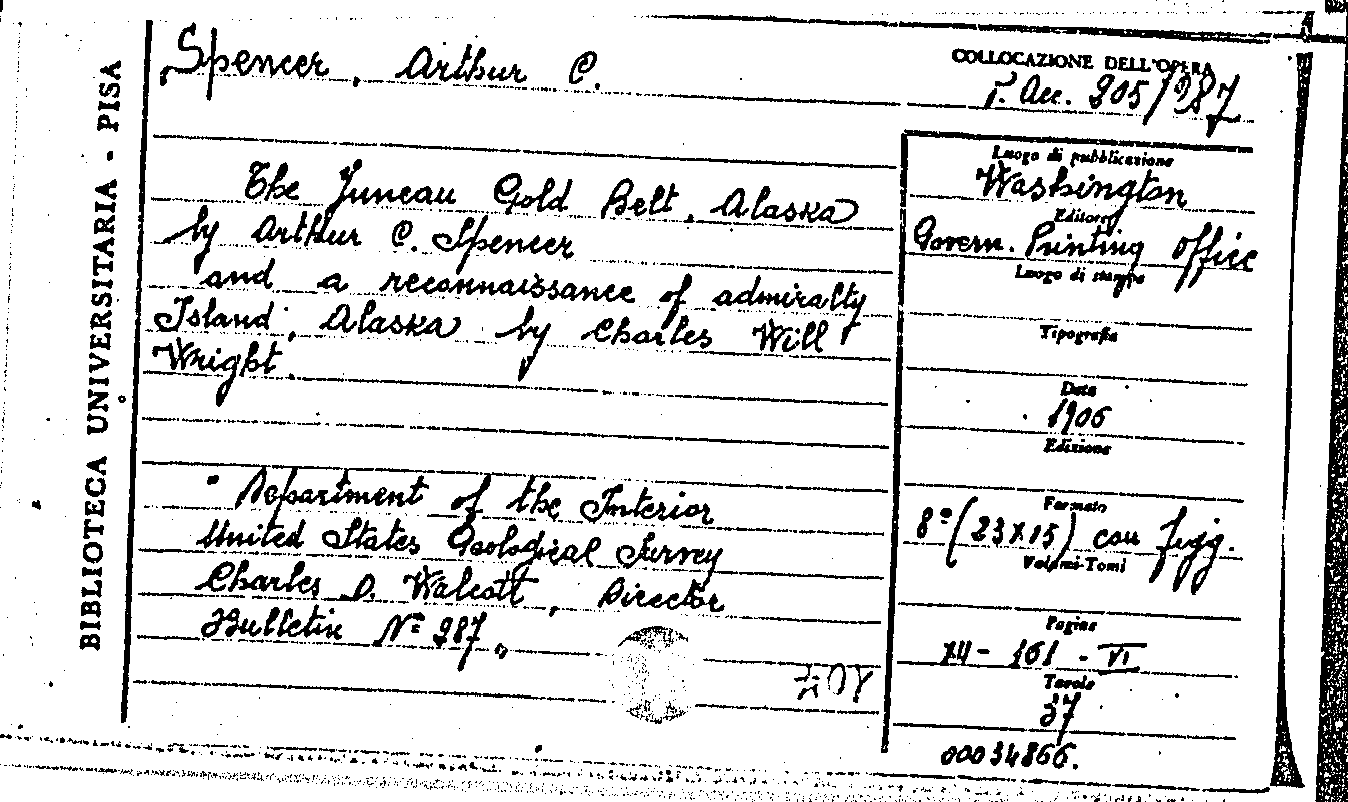 BIBLIOTECA UNIVERSITARIA - PISA
Spencer, Arthur C.
COLLOCAZIONE DELL'OPERA
205/287
The Juneau Gold Belt, Alaska
by Arthur C. Spencer
and a reconnaissance of admiralty
Island, Alaska by Charles Will
Wright.
" Department of the Interior
United States Geological Survey
Charles D. Walcott, Director
Bulletin Nº 287 "
Luogo di pubblicazione
Washington
Editore
Govern. Printing office
Luogo di stampa
Tipografia
Data
1906
Edizione
Formato
8º (23x15) con figg.
Volumi-Tomi
Pagine
161 - VI
Tavole
37
00034866.